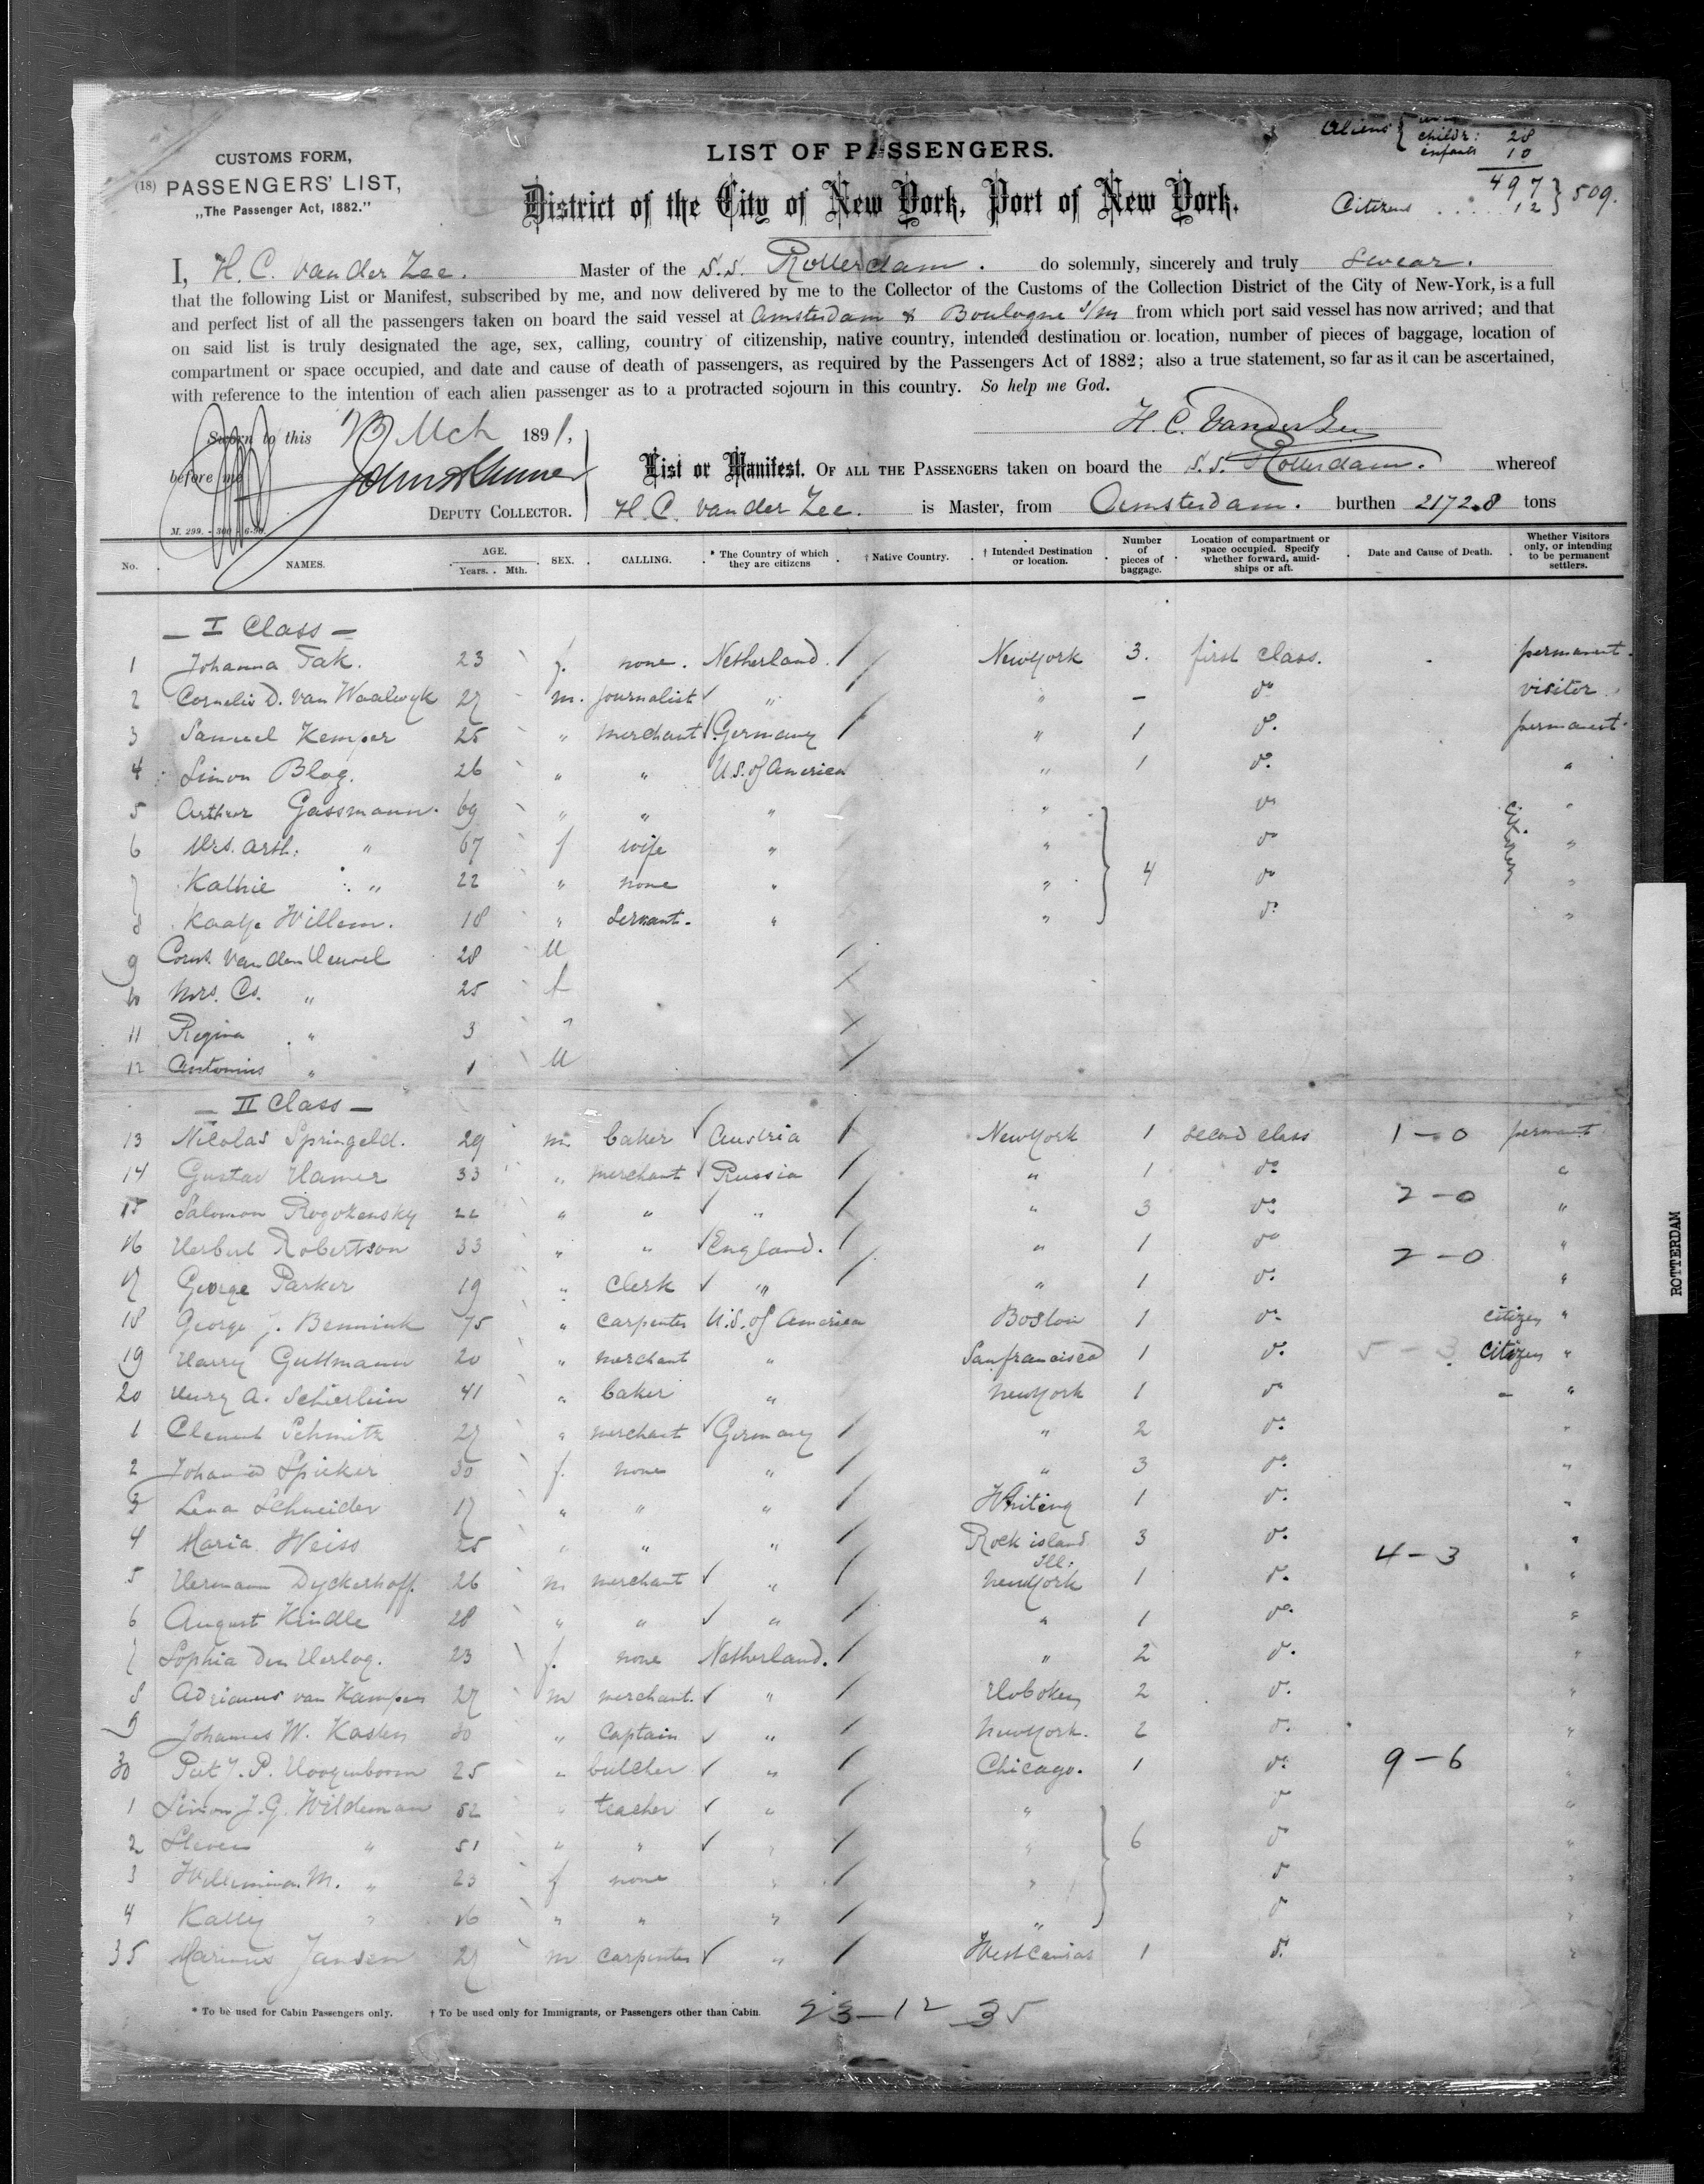 Aliens { childr: 28
infants 10
497 } 509.
Citizens . . . . . 12
CUSTOMS FORM,
(18) PASSENGERS' LIST,
„The Passenger Act, 1882."
LIST OF PASSENGERS.
District of the City of New York, Port of New York.
I, H. C. van der Zee. Master of the S.S. Rotterdam. do solemnly, sincerely and truly swear.
that the following List or Manifest, subscribed by me, and now delivered by me to the Collector of the Customs of the Collection District of the City of New-York, is a full
and perfect list of all the passengers taken on board the said vessel at Amsterdam & Boulogne s/m from which port said vessel has now arrived; and that
on said list is truly designated the age, sex, calling, country of citizenship, native country, intended destination or location, number of pieces of baggage, location of
compartment or space occupied, and date and cause of death of passengers, as required by the Passengers Act of 1882; also a true statement, so far as it can be ascertained,
with reference to the intention of each alien passenger as to a protracted sojourn in this country. So help me God.
H. C. Vander Zee
Sworn to this 13 Mch 1891,
before me
DEPUTY COLLECTOR.
M. 299. - 300 - 6-90.
List or Manifest. OF ALL THE PASSENGERS taken on board the S.S. Rotterdam. whereof
H. C. van der Zee. is Master, from Amsterdam. burthen 2172.8 tons
No. NAMES. AGE. Years. Mth. SEX. CALLING. * The Country of which they are citizens † Native Country. † Intended Destination or location. Number of pieces of baggage. Location of compartment or space occupied. Specify whether forward, amidships or aft. Date and Cause of Death. Whether Visitors only, or intending to be permanent settlers.
— I Class —
1 Johanna Tak. 23 f. none. Netherland. / New York 3. first class. permanent.
2 Cornelis D. van Waalwyk 27 m. journalist ✓ " / " — do visitor
3 Samuel Kemper 25 " merchant ✓ Germany / " 1 do. permanent.
4 Simon Blog. 26 " " U.S. of America " 1 do. "
5 Arthur Gassmann. 69 " " " " do "
6 Mrs. Arth. " 67 f wife " " do citizen "
7 Kathie " 22 " none " " 4 do "
8 Kaatje Willem. 18 " servant. " " do "
9 Corns. van den Heuvel 28 M /
10 Mrs. Cs. " 25 f /
11 Regina " 3 " /
12 Antonius " 1 M /
— II Class —
13 Nicolas Springeld. 29 m. baker ✓ Austria / New York 1 second class 1—0 permant
14 Gustav Hamer 33 " merchant ✓ Russia / " 1 do "
15 Salomon Rogozensky 22 " " ✓ " / " 3 do 2—0 "
16 Herbert Robertson 33 " " ✓ England. / " 1 do "
17 George Parker 19 " clerk ✓ " / " 1 do. 2—0 "
18 George J. Bennink 75 " carpenter U.S. of America Boston 1 do citizen "
19 Harry Guttmann 20 " merchant " San francisco 1 do. 5—3 citizen "
20 Henry A. Schierlein 41 " baker " New York 1 do — "
1 Clement Schmitz 27 " merchant ✓ Germany / " 2 do. "
2 Johanna Spieker 30 f. none " / " 3 do. "
3 Lena Schneider 17 " " " / Whiting 1 do. "
4 Maria Weiss 25 " " " / Rock island Ill. 3 do. "
5 Hermann Dyckerhoff. 26 m merchant ✓ " / New York 1 do. 4—3 "
6 August Kindle 28 " " ✓ " / " 1 do. "
7 Sophia Den Hertog. 23 f. none Netherland. / " 2 do. "
8 Adrianus van Kampen 27 m merchant. ✓ " / Hoboken 2 do. "
9 Johannes W. Kasten 30 " captain ✓ " / New York. 2 do. "
30 Piet J. P. Hoogenboom 25 " butcher ✓ " / Chicago. 1 do. 9—6 "
1 Simon J. G. Wildeman 52 " teacher ✓ " / " do "
2 Steven " 51 " " ✓ " / " 6 do "
3 Willemina M. " 23 f none " / " do "
4 Kathy " 16 " " " / " do "
35 Marinus Jansen 27 m carpenter ✓ " / West Cansas 1 do. "
* To be used for Cabin Passengers only. † To be used only for Immigrants, or Passengers other than Cabin.
23—12 35
ROTTERDAM